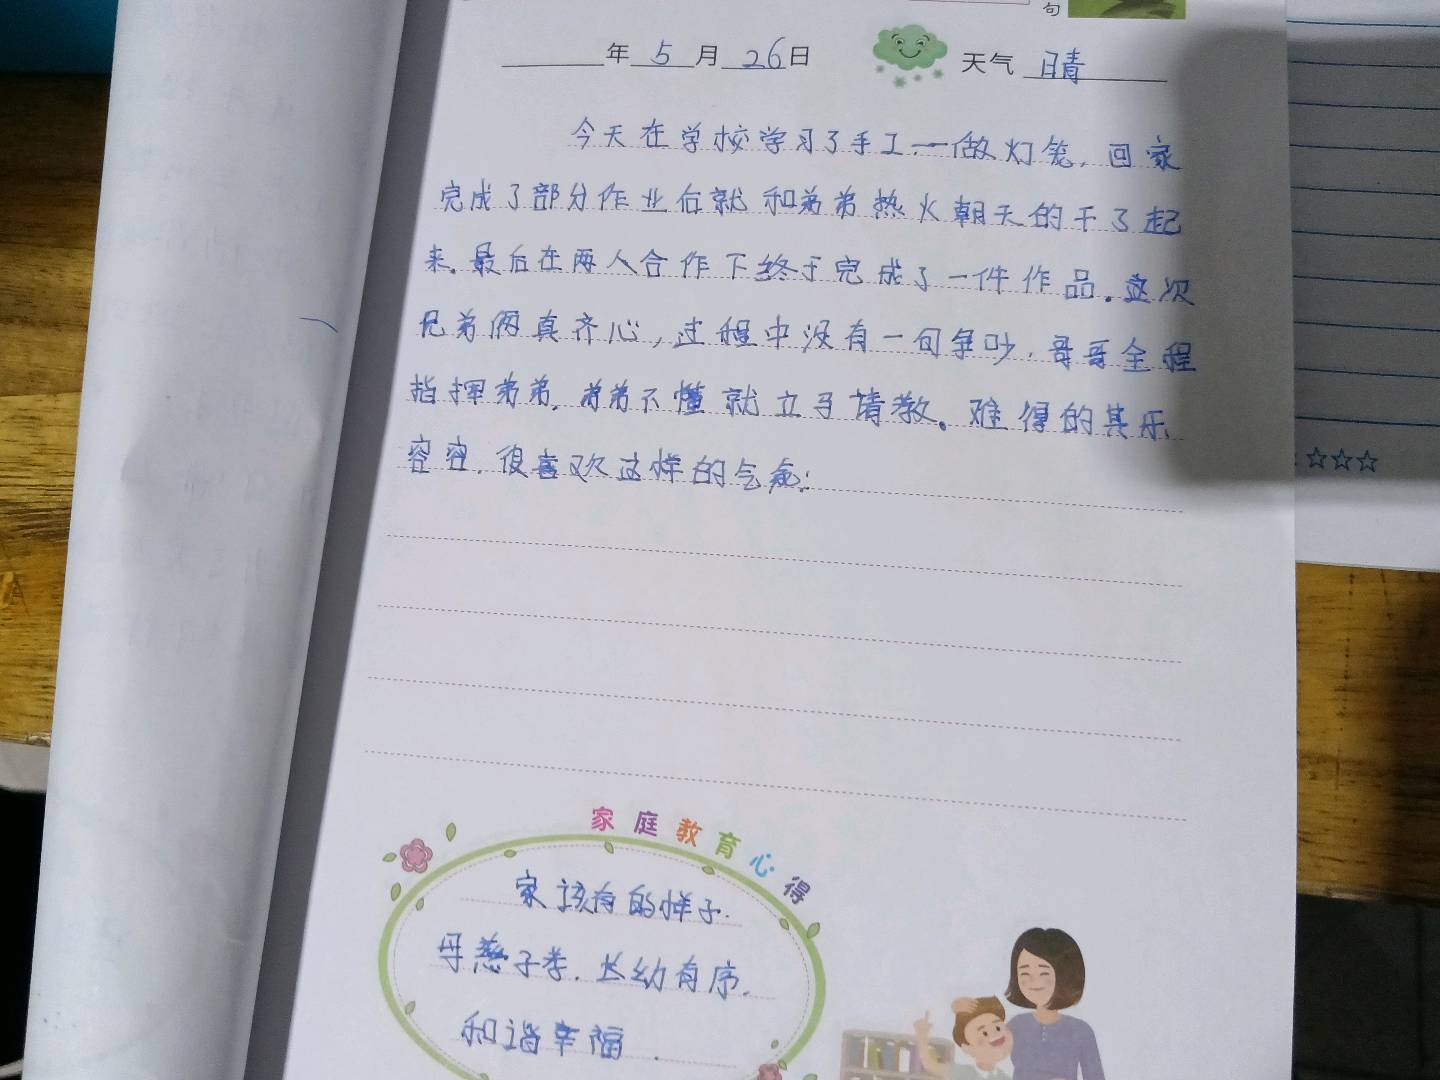 句
年 5 月 26 日 天气 晴
今天在学校学习了手工一做灯笼,回家
完成了部分作业后就和弟弟热火朝天的干了起
来。最后在两人合作下终于完成了一件作品。这次
兄弟俩真齐心,过程中没有一句争吵,哥哥全程
指挥弟弟,弟弟不懂就立马请教。难得的其乐
容容,很喜欢这样的气氛!
☆☆☆
家庭教育心得
家该有的样子.
母慈子孝.长幼有序.
和谐幸福.